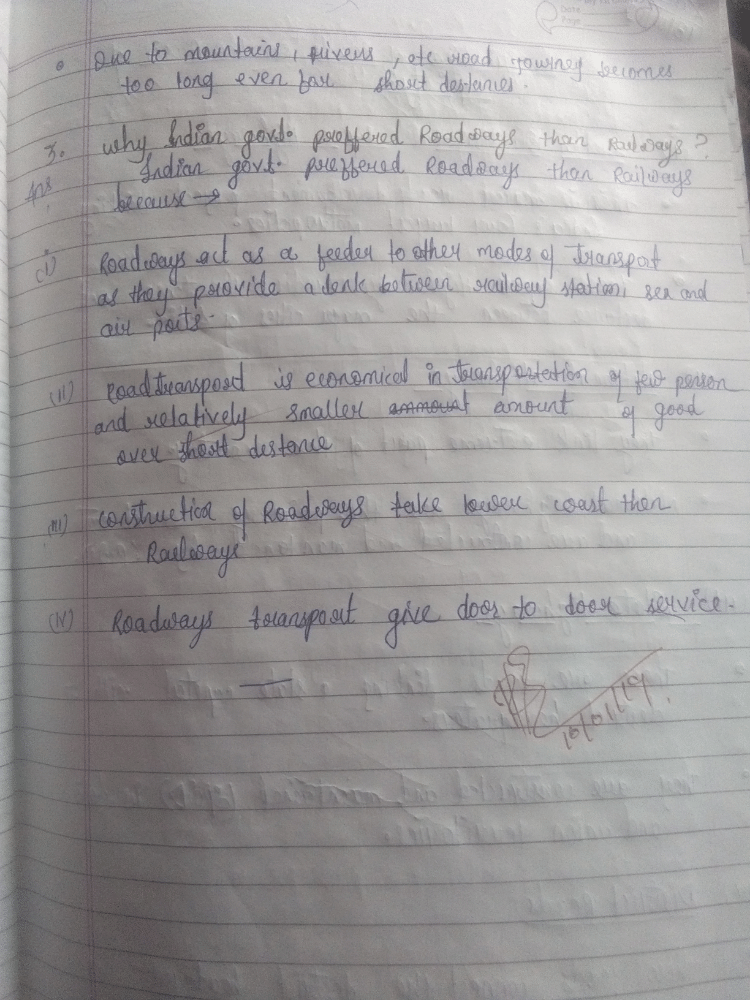 Date
Page
• Due to mountains, rivers, etc road journey becomes
too long even for short destances.
3. why Indian govt. preffered Roadways than Railways?
Ans Indian govt. preffered Roadways than Railways
because →
(i) Roadways act as a feeder to other modes of transport
as they provide a lenk between railway station, sea and
air ports.
(ii) Road transport is economical in transportation of few person
and relatively smaller ammount amount of good
over short destance
(iii) construction of Roadways take lower coast then
Railways
(iv) Roadways transport give door to door service.
10/01/19